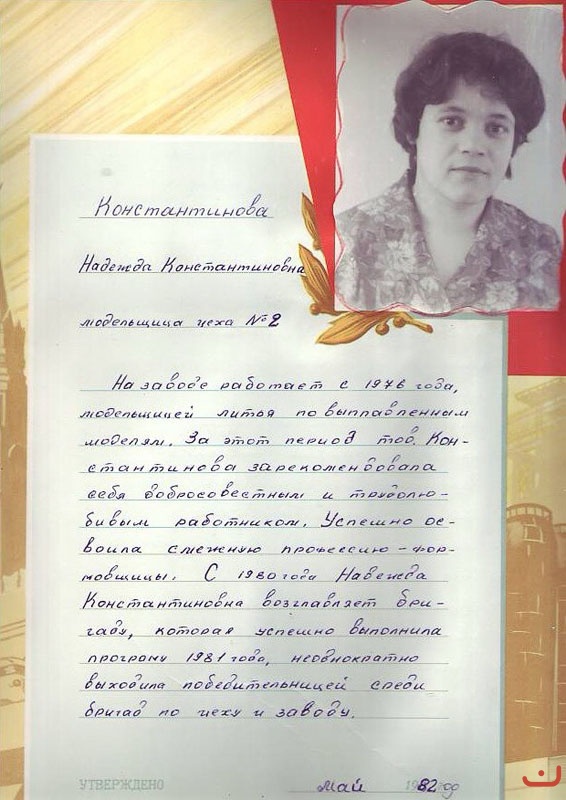 Константинова
Надежда Константиновна
модельщица цеха № 2
На заводе работает с 1976 года,
модельщицей литья по выплавленным
моделям. За этот период тов. Кон-
стантинова зарекомендовала
себя добросовестным и трудолю-
бивым работником. Успешно ос-
воила смежную профессию - фор-
мовщицы. С 1980 года Надежда
Константиновна возглавляет бри-
гаду, которая успешно выполнила
програму 1981 года, неоднократно
выходила победительницей среди
бригад по цеху и заводу.
УТВЕРЖДЕНО май 1982 год